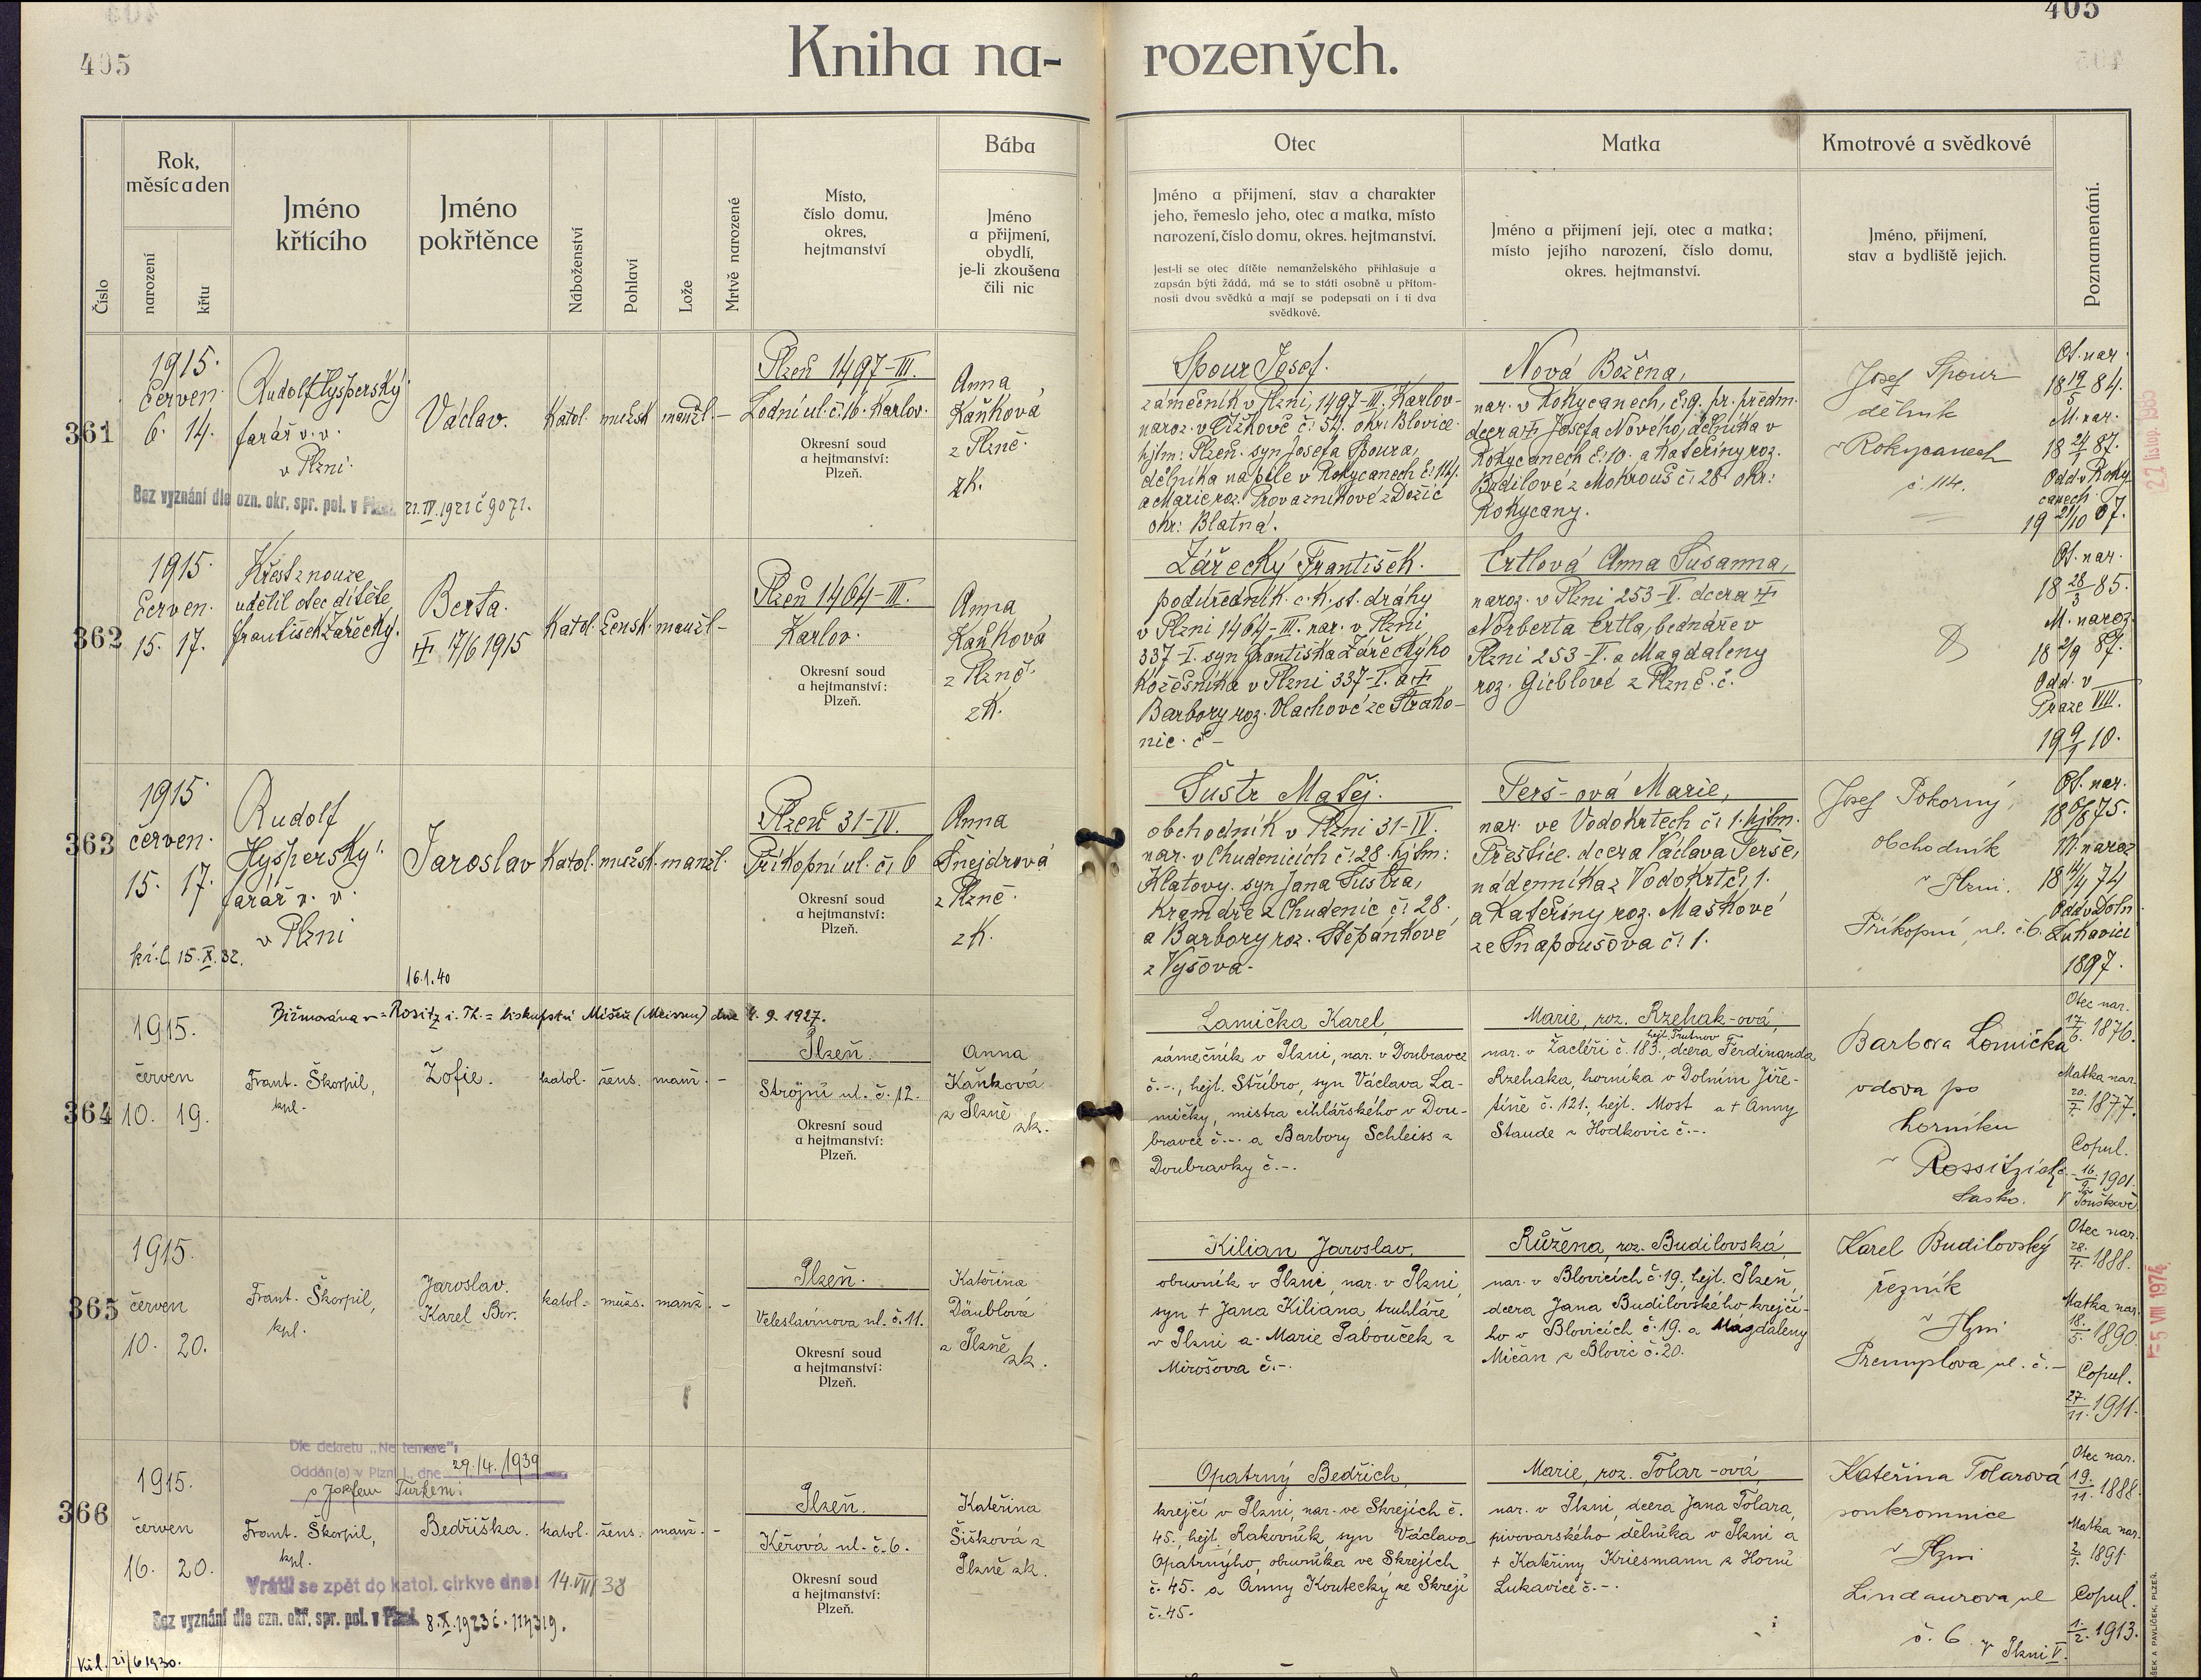 405
405
Kniha na-rozených.
Číslo
Rok,
měsíc a den
narození
křtu
Jméno
křtícího
Jméno
pokřtěnce
Náboženství
Pohlaví
Lože
Mrtvě narozené
Místo,
číslo domu,
okres,
hejtmanství
Bába
Jméno
a přijmení,
obydlí,
je-li zkoušena
čili nic
Otec
Jméno a přijmení, stav a charakter
jeho, řemeslo jeho, otec a matka, místo
narození, číslo domu, okres. hejtmanství.
Jest-li se otec dítěte nemanželského přihlašuje a
zapsán býti žádá, má se to státi osobně u přítom-
nosti dvou svědků a mají se podepsati on i ti dva
svědkové.
Matka
Jméno a přijmení její, otec a matka;
místo jejího narození, číslo domu,
okres. hejtmanství.
Kmotrové a svědkové
Jméno, přijmení,
stav a bydliště jejich.
Poznamenání.
361
1915.
červen.
6. 14.
Rudolf Hyšperský.
farář v. v.
v Plzni.
Václav.
Katol.
mužsk.
manžl.
-
Plzeň 1497-III.
Lodní ul. č. 16. Karlov.
Okresní soud
a hejtmanství:
Plzeň.
Anna
Kaňková
z Plzně.
zk.
Bez vyznání dle ozn. okr. spr. pol. v Plzni. 21.IV.1921 č 9071.
Spour Josef.
zámečník v Plzni, 1497-III. Karlov-
naroz. v Čížkově č. 54. okr: Blovice.
hjtm: Plzeň. syn Josefa Spoura,
dělníka na pile v Rokycanech č. 114.
a Marie roz. Provazníkové z Dožic
okr: Blatná.
Nová Božena,
nar. v Rokycanech, č. 9. pr. předm.
dcera ☩ Josefa Nového, dělníka v
Rokycanech č. 10. a Kateřiny roz.
Budilové z Mokrouš č. 28. okr:
Rokycany.
Josef Spour
dělník
v Rokycanech
č. 114.
Ot. nar.
18 19/5 84.
M. nar.
18 24/1 87.
Odd. v Roky
canech
19 21/10 07.
22. listop. 1985
362
1915.
červen.
15. 17.
Křest z nouze
udělil otec dítěte
František Zářecký.
Berta.
☩ 17/6 1915
Katol.
žensk.
manžl-
Plzeň 1464-III.
Karlov.
Okresní soud
a hejtmanství:
Plzeň.
Anna
Kaňková
z Plzně.
zk.
Zářecký František.
podúředník c. k. st. dráhy
v Plzni 1464-III. nar. v Plzni
337-I. syn Františka Zářeckýho
kožešníka v Plzni 337-I. a ☩
Barbory roz. Vlachové ze Strako-
nic. č -
Ertlová Anna Susanna,
naroz. v Plzni 253-V. dcera ☩
Norberta Ertla, bednáře v
Plzni 253-V. a Magdaleny
roz. Gieblové z Plzně. č.
Ot. nar.
18 28/3 85.
M. naroz.
18 2/9 87.
Odd. v
Praze VIII.
19 9/1 10.
363
1915.
červen.
15. 17.
Rudolf
Hyšperský.
farář v. v.
v Plzni
kř. l. 15.X.32.
16.1.40
Jaroslav
Katol.
mužsk.
manžl.
Plzeň 31-IV.
Příkopní ul. č. 6
Okresní soud
a hejtmanství:
Plzeň.
Anna
Šnejdrová
z Plzně.
zk.
Šustr Matěj.
obchodník v Plzni 31-IV.
nar. v Chudenicích č. 28. hjtm:
Klatovy. syn Jana Šustra,
kramáře z Chudenic č. 28.
a Barbory roz. Štěpánkové
z Vyšova.
Terš-ová Marie,
nar. ve Vodokrtech č. 1. hjtm.
Přeštice. dcera Václava Terše,
nádenníka z Vodokrt č. 1.
a Kateřiny roz. Maškové
ze Snapoušova č. 1.
Josef Pokorný,
obchodník
v Plzni.
Příkopní ul. č. 6.
Ot. nar.
18 6/8 75.
M. naroz
18 14/4 74
Odd. v Doln.
Lukavici
1897.
364
Biřmována v Rositz i. Th. = biskupství Míšeň (Meissen) dne 4. 9. 1927.
1915.
červen
10. 19.
Frant. Škorpil,
kpl.
Žofie.
katol.
žens.
manž.
-
Plzeň.
Strojní ul. č. 12.
Okresní soud
a hejtmanství:
Plzeň.
Anna
Kaňková
z Plzně
zk.
Lamička Karel,
zámečník v Plzni, nar. v Doubravce
č.-., hejt. Stříbro, syn Václava La-
mičky, mistra cihlářského v Dou-
bravce č.-. a Barbory Schleiss z
Doubravky č.-.
Marie, roz. Rzehak-ová,
hejt. Trutnov
nar. v Žacléři č. 183., dcera Ferdinanda
Rzehaka, horníka v Dolním Jiře-
tíně č. 121., hejt. Most a + Anny
Staude z Hodkovic č.-.
Barbora Lomička
vdova po
horníku
v Rossitz
Sasko.
Otec nar.
17/6. 1876.
Matka nar.
20./7. 1877.
Copul.
16./9. 1901.
v Touškově
365
1915.
červen
10. 20.
Frant. Škorpil,
kpl.
Jaroslav.
Karel Boř.
katol.
mužs.
manž.
-
Plzeň.
Veleslavínova ul. č. 11.
Okresní soud
a hejtmanství:
Plzeň.
Kateřina
Däublová
z Plzně
zk.
Kilian Jaroslav,
obuvník v Plzni, nar. v Plzni,
syn + Jana Kiliána truhláře
v Plzni a Marie Pabouček z
Mirošova č.-.
Růžena, roz. Budilovská,
nar. v Blovicích č. 19. hejt. Plzeň,
dcera Jana Budilovského krejčí-
ho v Blovicích č. 19. a Magdaleny
Mičan z Blovic č. 20.
Karel Budilovský
řezník
v Plzni
Přemyslova ul. č.-
Otec nar.
28./4. 1888.
Matka nar.
18./5. 1890.
Copul.
27./11. 1911.
5 VIII 1974
366
Dle dekretu „Ne temere“:
Oddán(a) v Plzni I., dne 29./4. 1939
s Josefem Turkem.
1915.
červen
16. 20.
Frant. Škorpil,
kpl.
Bedřiška.
katol.
žens.
manž.
-
Plzeň.
Kéřová ul. č. 6.
Okresní soud
a hejtmanství:
Plzeň.
Kateřina
Šišková z
Plzně zk.
Vrátil se zpět do katol. církve dne: 14.VIII 38
Bez vyznání dle ozn. okr. spr. pol. v Plzni. 8.X.1923 č. 114319.
21/6 1930.
Opatrný Bedřich,
krejčí v Plzni, nar. ve Skrejích č.
45., hejt. Rakovník, syn Václava
Opatrnýho, obuvníka ve Skrejích
č. 45. a Anny Koutecký ze Skrejí
č. 45.
Marie, roz. Tolar-ová,
nar. v Plzni, dcera Jana Tolara,
pivovarského dělníka v Plzni a
+ Kateřiny Kriesmann z Horní
Lukavice č.-.
Kateřina Tolarová
soukromnice
v Plzni
Lindaurova ul
č. 6.
Otec nar.
19./11. 1888.
Matka nar.
2/1. 1891.
Copul.
1./2. 1913.
v Plzni V.
ŠEK A PAVLÍČEK, PLZEŇ.